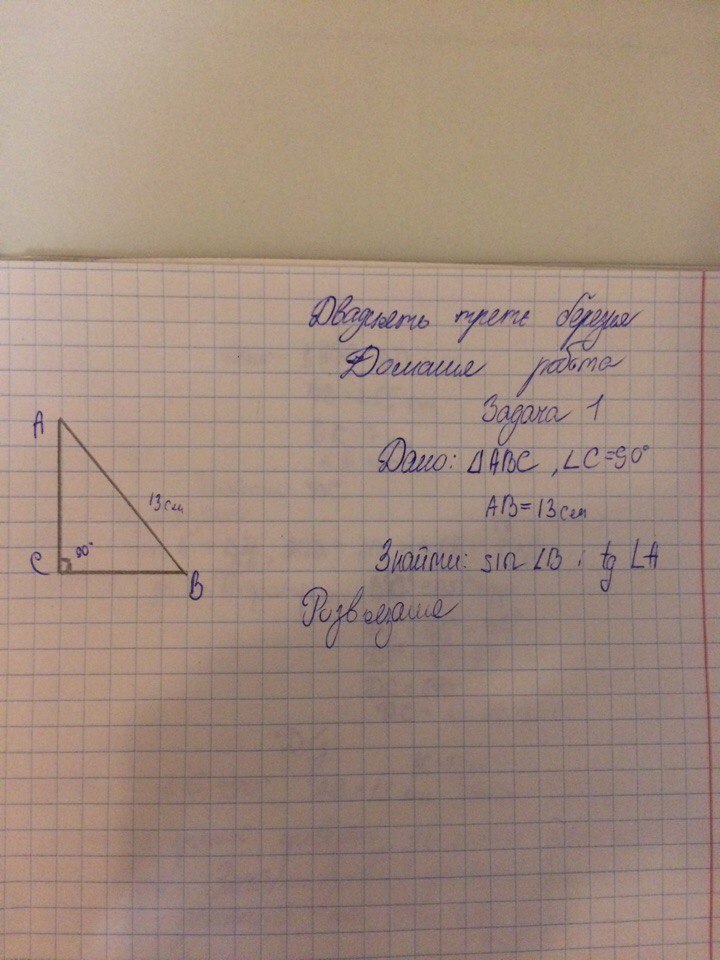 Двадцять третє березня
Домашня робота
Задача 1
Дано: △ABC, ∠C=90°
AB=13см
Знайти: sin ∠B i tg ∠A
Розв'язання
A
13см
C 90°
B